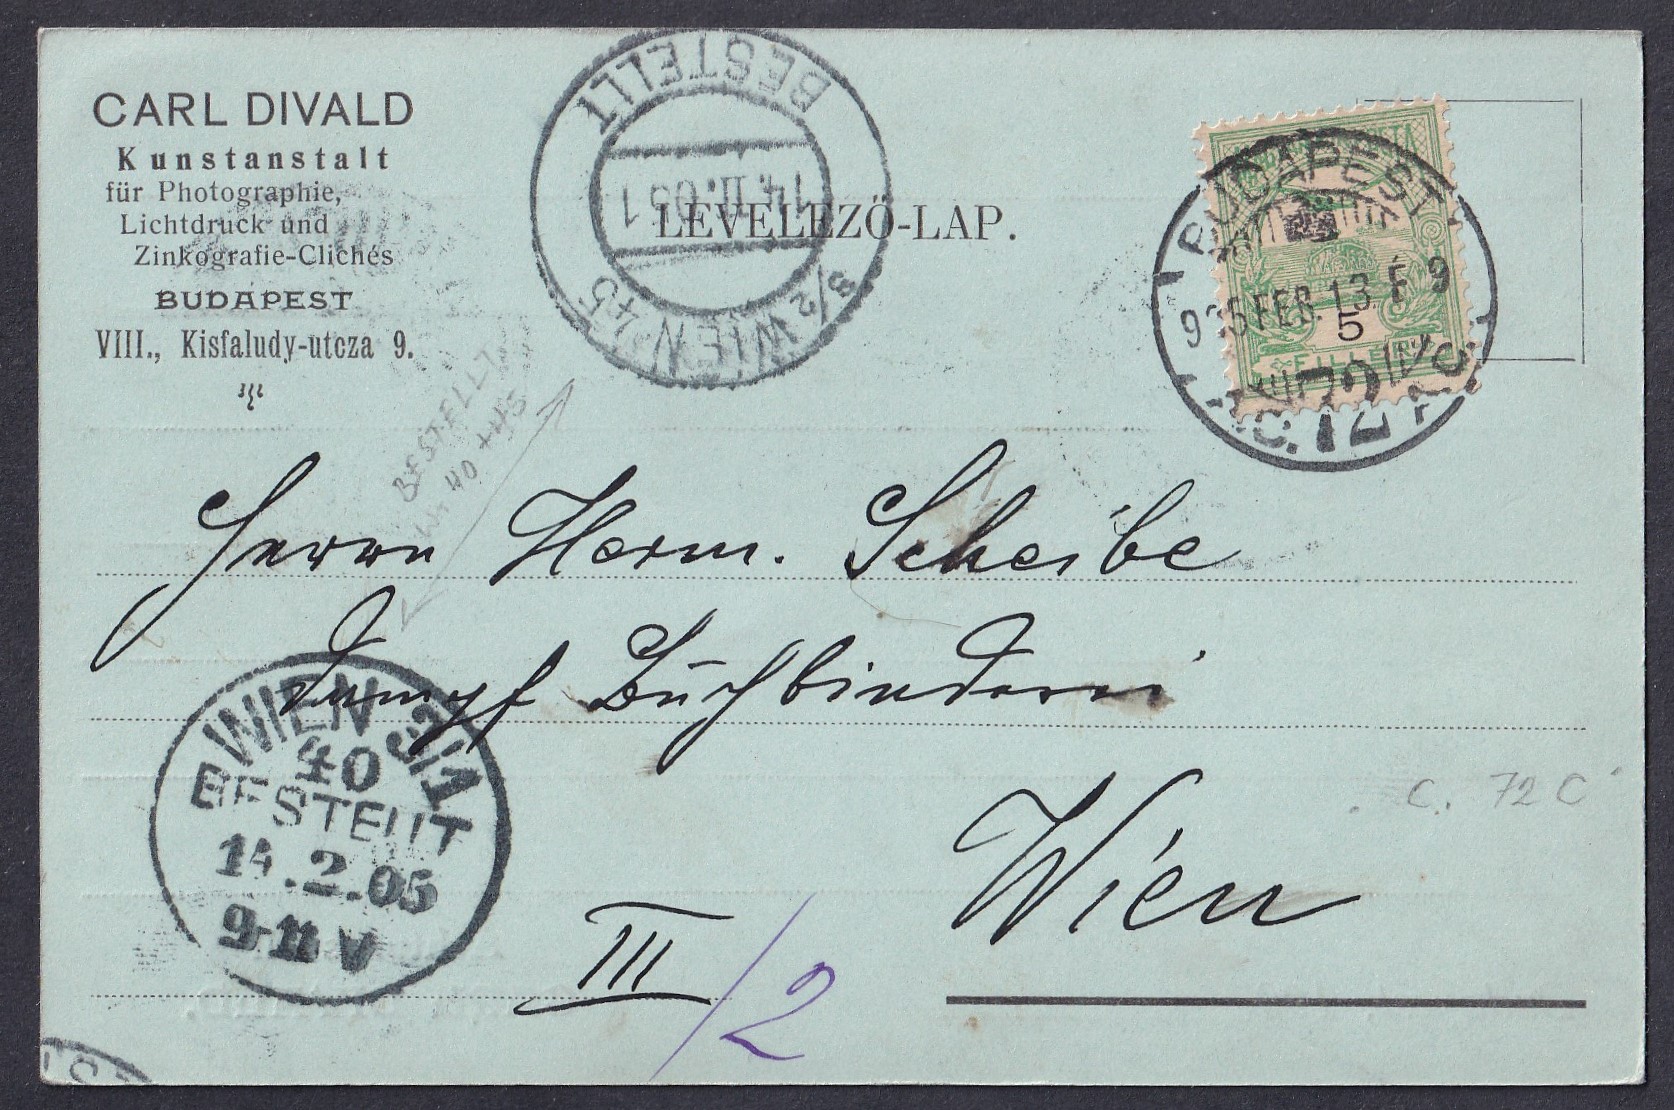 CARL DIVALD
Kunstanstalt
für Photographie,
Lichtdruck und
Zinkografie-Clichés
BUDAPEST
VIII., Kisfaludy-utcza 9.
BESTELLT
14.II.05 1
3/2 WIEN 45
LEVELEZŐ-LAP.
BUDAPEST
905 FEB. 13. F 9
72
5
FILLÉR
BESTELLT
WI 40 + 45
Herrn Herm. Scheibe
Dampf Buchbinderei
Wien
III/2
C. 72 C
WIEN 3/1
40
BESTELLT
14.2.05
9-11 V